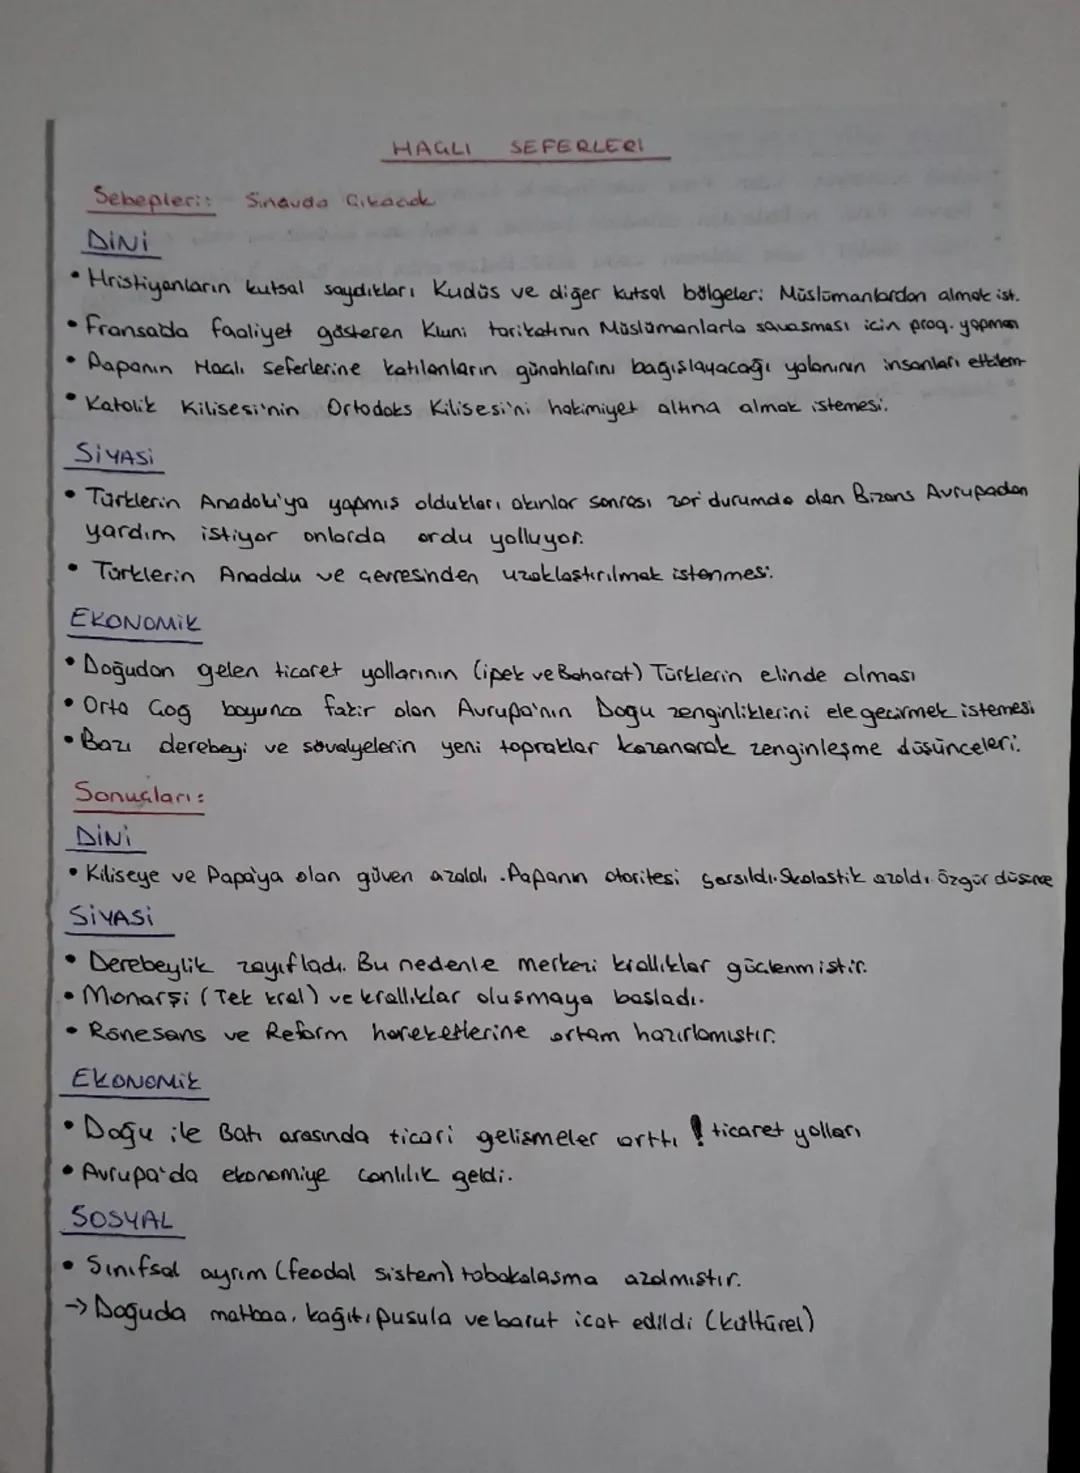 HAÇLI SEFERLERİ
Sebepleri: Sınavda Çıkacak
DİNİ
• Hristiyanların kutsal saydıkları Kudüs ve diğer kutsal bölgeleri Müslümanlardan almak ist.
• Fransa'da faaliyet gösteren Kluni tarikatının Müslümanlarla savaşması için prog. yapması
• Papanın Haçlı Seferlerine katılanların günahlarını bağışlayacağı yalanının insanları etkilem
• Katolik Kilisesi'nin Ortodoks Kilisesi'ni hakimiyet altına almak istemesi.
SİYASİ
• Türklerin Anadolu'ya yapmış oldukları akınlar sonrası zor durumda olan Bizans Avrupadan
yardım istiyor onlarda ordu yolluyor.
• Türklerin Anadolu ve çevresinden uzaklaştırılmak istenmesi.
EKONOMİK
• Doğudan gelen ticaret yollarının (ipek ve Baharat) Türklerin elinde olması
• Orta Çağ boyunca fakir olan Avrupa'nın Doğu zenginliklerini ele geçirmek istemesi
• Bazı derebeyi ve şövalyelerin yeni topraklar kazanarak zenginleşme düşünceleri.
Sonuçları:
DİNİ
• Kiliseye ve Papa'ya olan güven azaldı. Papanın otoritesi sarsıldı. Skolastik azaldı. özgür düşünce
SİYASİ
• Derebeylik zayıfladı. Bu nedenle merkezi krallıklar güçlenmiştir.
• Monarşi (Tek kral) ve krallıklar oluşmaya başladı.
• Rönesans ve Reform hareketlerine ortam hazırlamıştır.
EKONOMİK
• Doğu ile Batı arasında ticari gelişmeler arttı ! ticaret yolları
• Avrupa'da ekonomiye canlılık geldi.
SOSYAL
• Sınıfsal ayrım (feodal sistem) tabakalaşma azalmıştır.
→ Doğuda matbaa, kağıt, pusula ve barut icat edildi (kültürel)